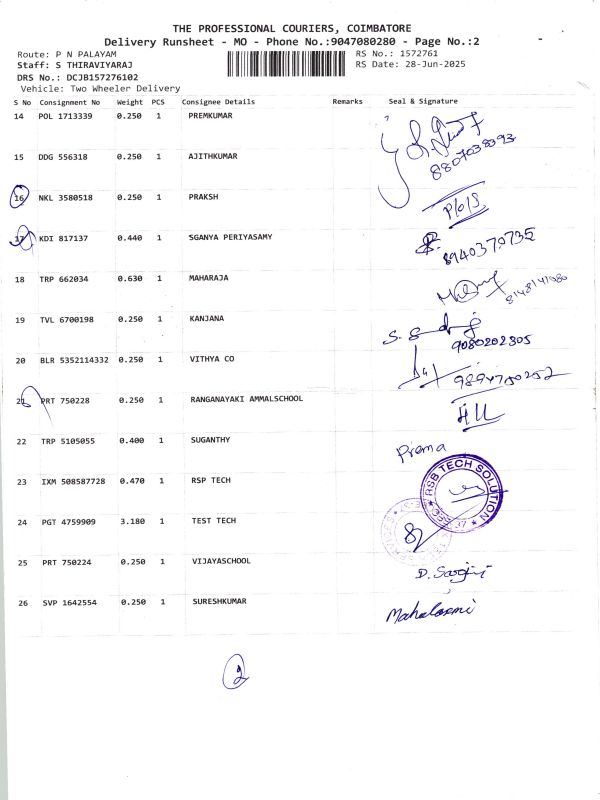 THE PROFESSIONAL COURIERS, COIMBATORE
Delivery Runsheet - MO - Phone No.:9047080280 - Page No.:2
Route: P N PALAYAM RS No.: 1572761
Staff: S THIRAVIYARAJ RS Date: 28-Jun-2025
DRS No.: DCJB157276102
Vehicle: Two Wheeler Delivery
S No Consignment No Weight PCS Consignee Details Remarks Seal & Signature
14 POL 1713339 0.250 1 PREMKUMAR
8807038093
15 DDG 556318 0.250 1 AJITHKUMAR
16 NKL 3580518 0.250 1 PRAKSH
17 KDI 817137 0.440 1 SGANYA PERIYASAMY 8940370735
18 TRP 662034 0.630 1 MAHARAJA
19 TVL 6700198 0.250 1 KANJANA
9080202305
20 BLR 5352114332 0.250 1 VITHYA CO
9894750252
21 PRT 750228 0.250 1 RANGANAYAKI AMMALSCHOOL
22 TRP 5105055 0.400 1 SUGANTHY Prema
23 IXM 508587728 0.470 1 RSP TECH RSB TECH SOLUTION
24 PGT 4759909 3.180 1 TEST TECH
25 PRT 750224 0.250 1 VIJAYASCHOOL
26 SVP 1642554 0.250 1 SURESHKUMAR Mahalaxmi
2